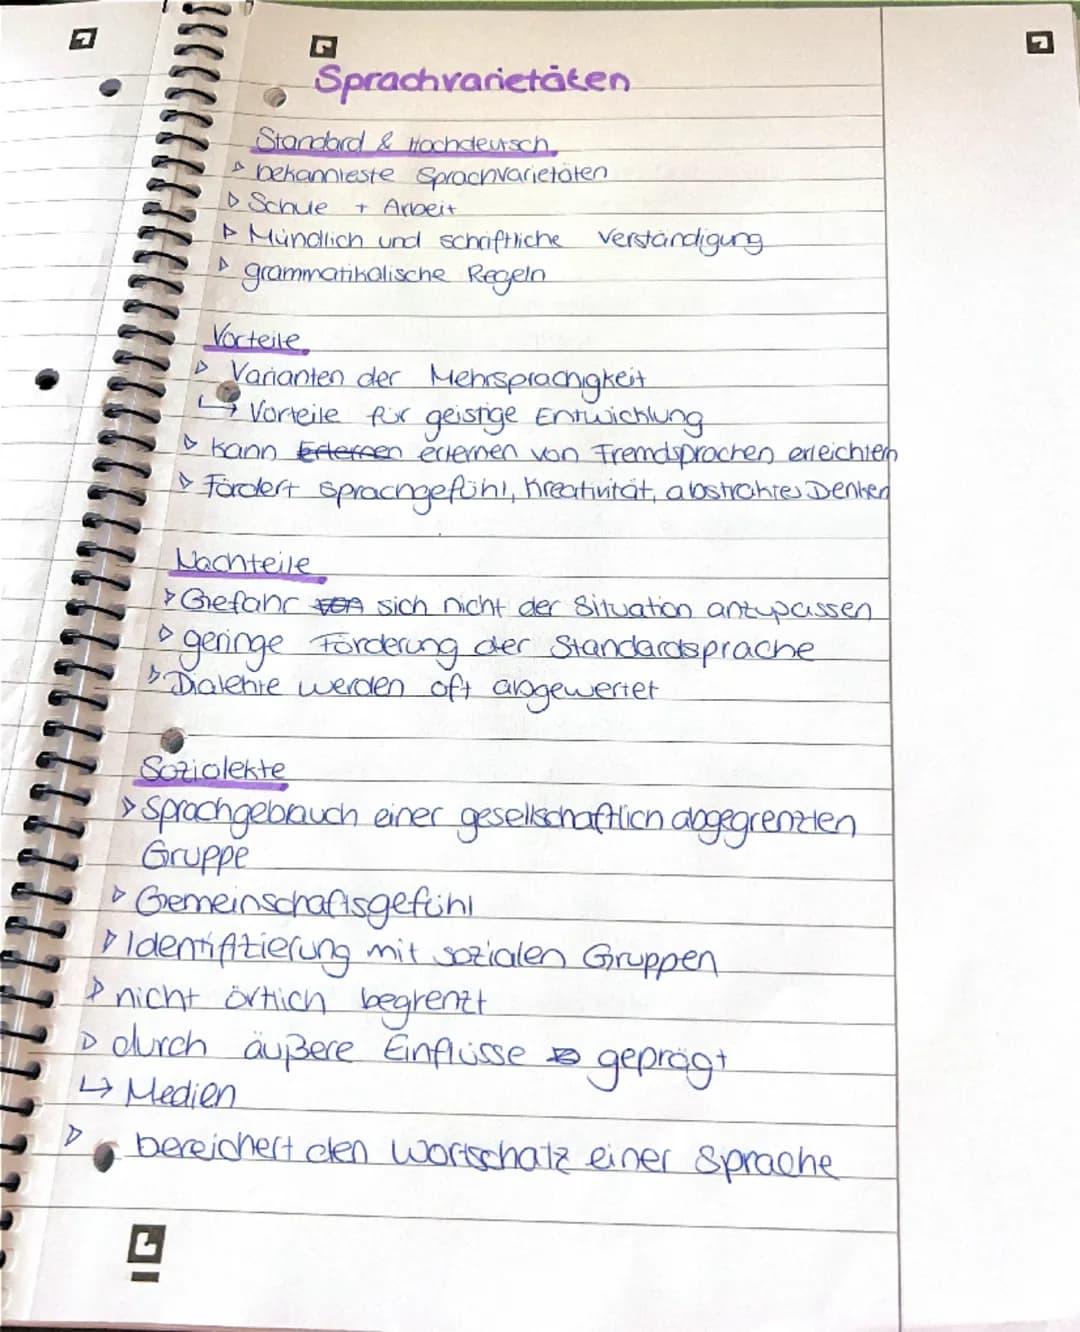 Sprachvarietäten
Standard & Hochdeutsch
▷ bekannteste Sprachvarietäten
▷ Schule + Arbeit
▷ Mündlich und schriftliche Verständigung
▷ grammatikalische Regeln
Vorteile
▷ Varianten der Mehrsprachigkeit
↳ Vorteile für geistige Entwicklung
▷ kann erlernen von Fremdsprachen erleichtern
▷ Fördert Sprachgefühl, Kreativität, abstraktes Denken
Nachteile
▷ Gefahr sich nicht der Situation anzupassen
▷ geringe Förderung der Standardsprache
▷ Dialekte werden oft abgewertet
Soziolekte
▷ Sprachgebrauch einer gesellschaftlich abgegrenzten
Gruppe
▷ Gemeinschaftsgefühl
▷ Identifizierung mit sozialen Gruppen
▷ nicht örtlich begrenzt
▷ durch äußere Einflüsse geprägt
↳ Medien
▷ bereichert den Wortschatz einer Sprache